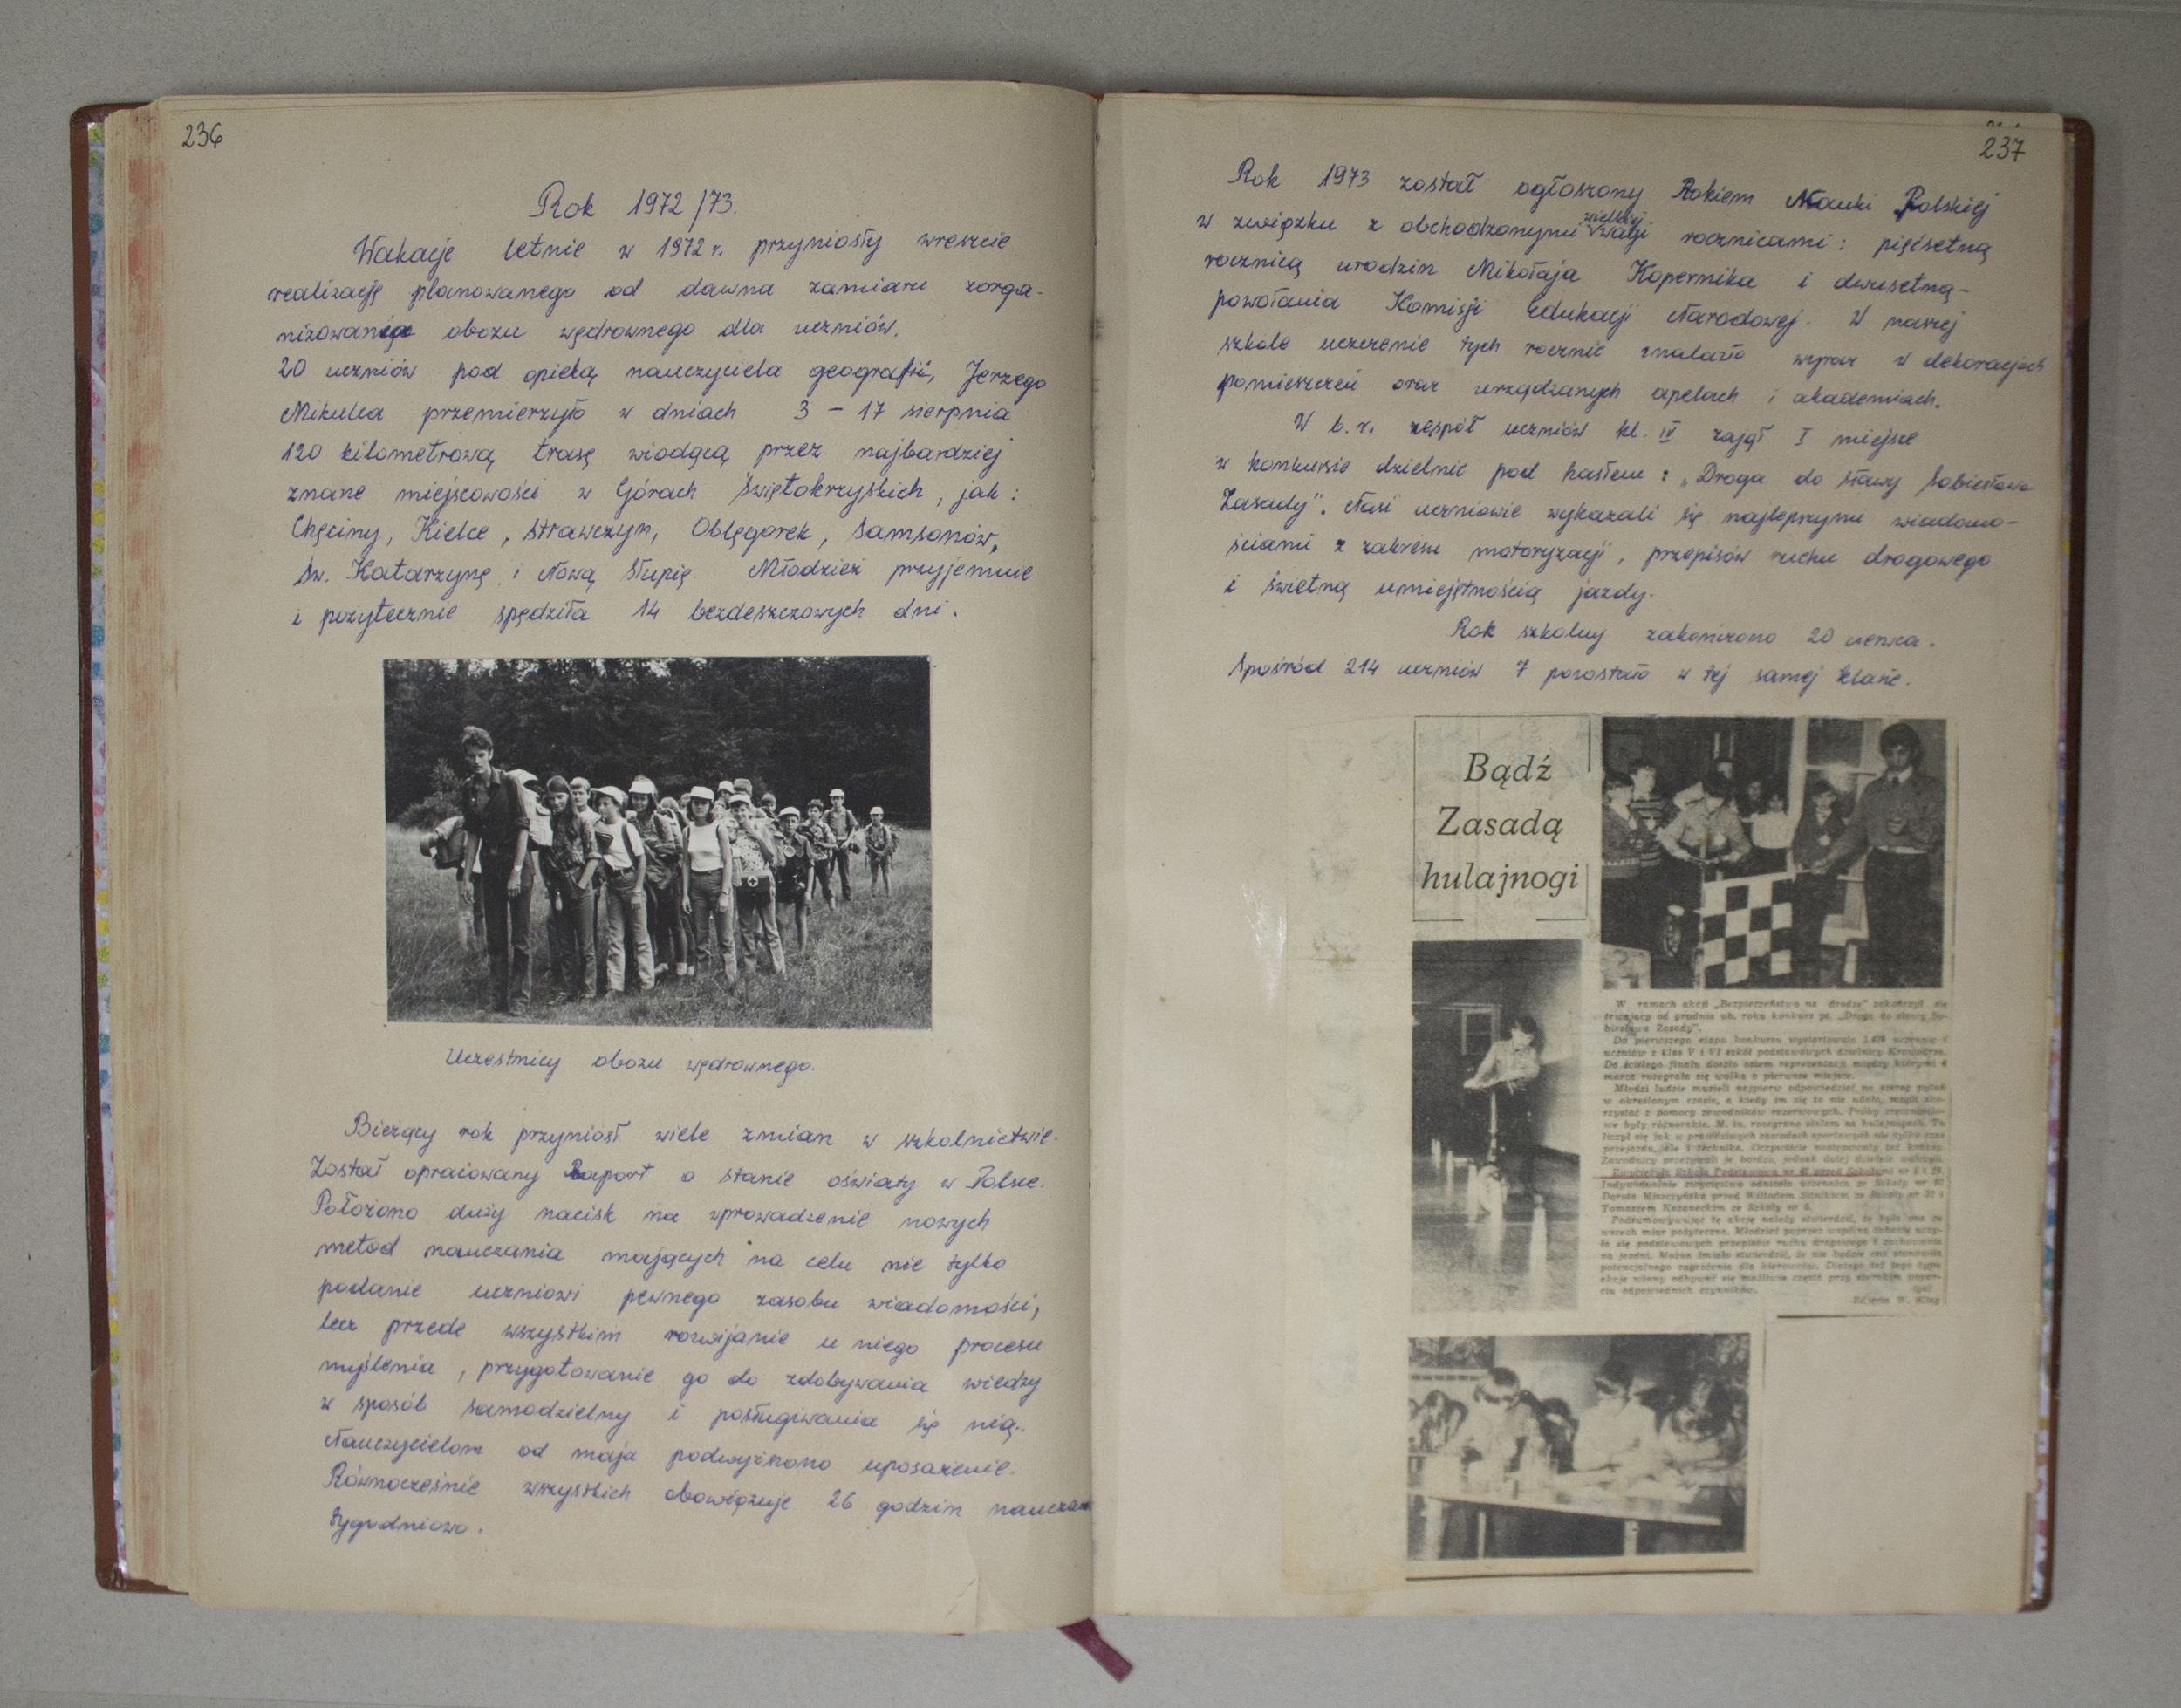 236
Rok 1972/73.
Wakacje letnie w 1972 r. przyniosły wreszcie
realizację planowanego od dawna zamiaru zorga-
nizowania obozu wędrownego dla uczniów.
20 uczniów pod opieką nauczyciela geografii, Jerzego
Mikulca przemierzyło w dniach 3 – 17 sierpnia
120 kilometrową trasę wiodącą przez najbardziej
znane miejscowości w Górach Świętokrzyskich, jak:
Chęciny, Kielce, Strawczyn, Oblęgorek, Samsonów,
Św. Katarzynę i Nową Słupię. Młodzież przyjemnie
i pożytecznie spędziła 14 bezdeszczowych dni.
Uczestnicy obozu wędrownego.
Bieżący rok przyniósł wiele zmian w szkolnictwie.
Został opracowany Raport o stanie oświaty w Polsce.
Położono duży nacisk na wprowadzenie nowych
metod nauczania mających na celu nie tylko
podanie uczniowi pewnego zasobu wiadomości,
lecz przede wszystkim rozwijanie u niego procesu
myślenia, przygotowanie go do zdobywania wiedzy
w sposób samodzielny i posługiwania się nią.
Nauczycielom od maja podwyższono uposażenie.
Równocześnie wszystkich obowiązuje 26 godzin
tygodniowo.
237
Rok 1973 został ogłoszony Rokiem Nauki Polskiej
w związku z obchodzonymi wielkiej wagi rocznicami: pięćsetną
rocznicą urodzin Mikołaja Kopernika i dwusetną-
powołania Komisji Edukacji Narodowej. W naszej
szkole uczczenie tych rocznic znalazło wyraz w dekoracjach
pomieszczeń oraz urządzanych apelach i akademiach.
W b.r. zespół uczniów kl. IV zajął I miejsce
w konkursie dzielnic pod hasłem: „Droga do sławy Sobiesława
Zasady". Nasi uczniowie wykazali się najlepszymi wiadomo-
ściami z zakresu motoryzacji, przepisów ruchu drogowego
i świetną umiejętnością jazdy.
Rok szkolny zakończono 20 czerwca.
Spośród 214 uczniów 7 pozostało w tej samej klasie.
Bądź
Zasadą
hulajnogi
W ramach akcji „Bezpieczeństwo na drodze" zakończył się
trwający od grudnia ub. roku konkurs pt. „Droga do sławy So-
biesława Zasady".
Do pierwszego etapu konkursu wystartowało uczennic i
uczniów z klas V i VI szkół podstawowych dzielnicy Krowodrza.
Do ścisłego finału doszło osiem reprezentacji między którymi 4
marca rozegrała się walka o pierwsze miejsce.
Młodzi ludzie musieli najpierw odpowiedzieć na szereg pytań
w określonym czasie, a kiedy im się to nie udało, mogli sko-
rzystać z pomocy zawodników rezerwowych. Próby zręcznościo-
we były różnorakie. M. in. rozegrano slalom na hulajnogach. Tu
liczył się jak w prawdziwych zawodach sportowych nie tylko czas
przejazdu, ale i technika. Oczywiście następowały też kraksy.
Zawodnicy przeżywali je bardzo, jednak dalej dzielnie walczyli.
Zwyciężyła Szkoła Podstawowa nr przed Szkołami nr 5 i
Indywidualnie zwycięstwo odniosła uczennica ze Szkoły nr
Dorota Miszczyńska przed Witoldem Sitnikiem ze Szkoły nr i
Tomaszem Kozaneckim ze Szkoły nr 5.
Podsumowując tę akcję należy stwierdzić, że była ona ze
wszech miar pożyteczna. Młodzież poprzez wspólną zabawę uczy-
ła się podstawowych przepisów ruchu drogowego i zachowania
na jezdni. Można śmiało stwierdzić, że nie będzie ona stanowiła
potencjalnego zagrożenia dla kierowców. Dlatego też tego typu
akcje winny odbywać się możliwie często przy szerokim popar-
ciu odpowiednich czynników.
Zdjęcia W. Klag